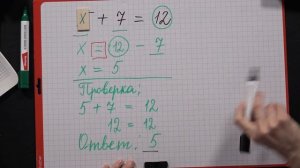 x + 7 = 12
x = 12 - 7
x = 5
Проверка:
5 + 7 = 12
12 = 12
Ответ: 5